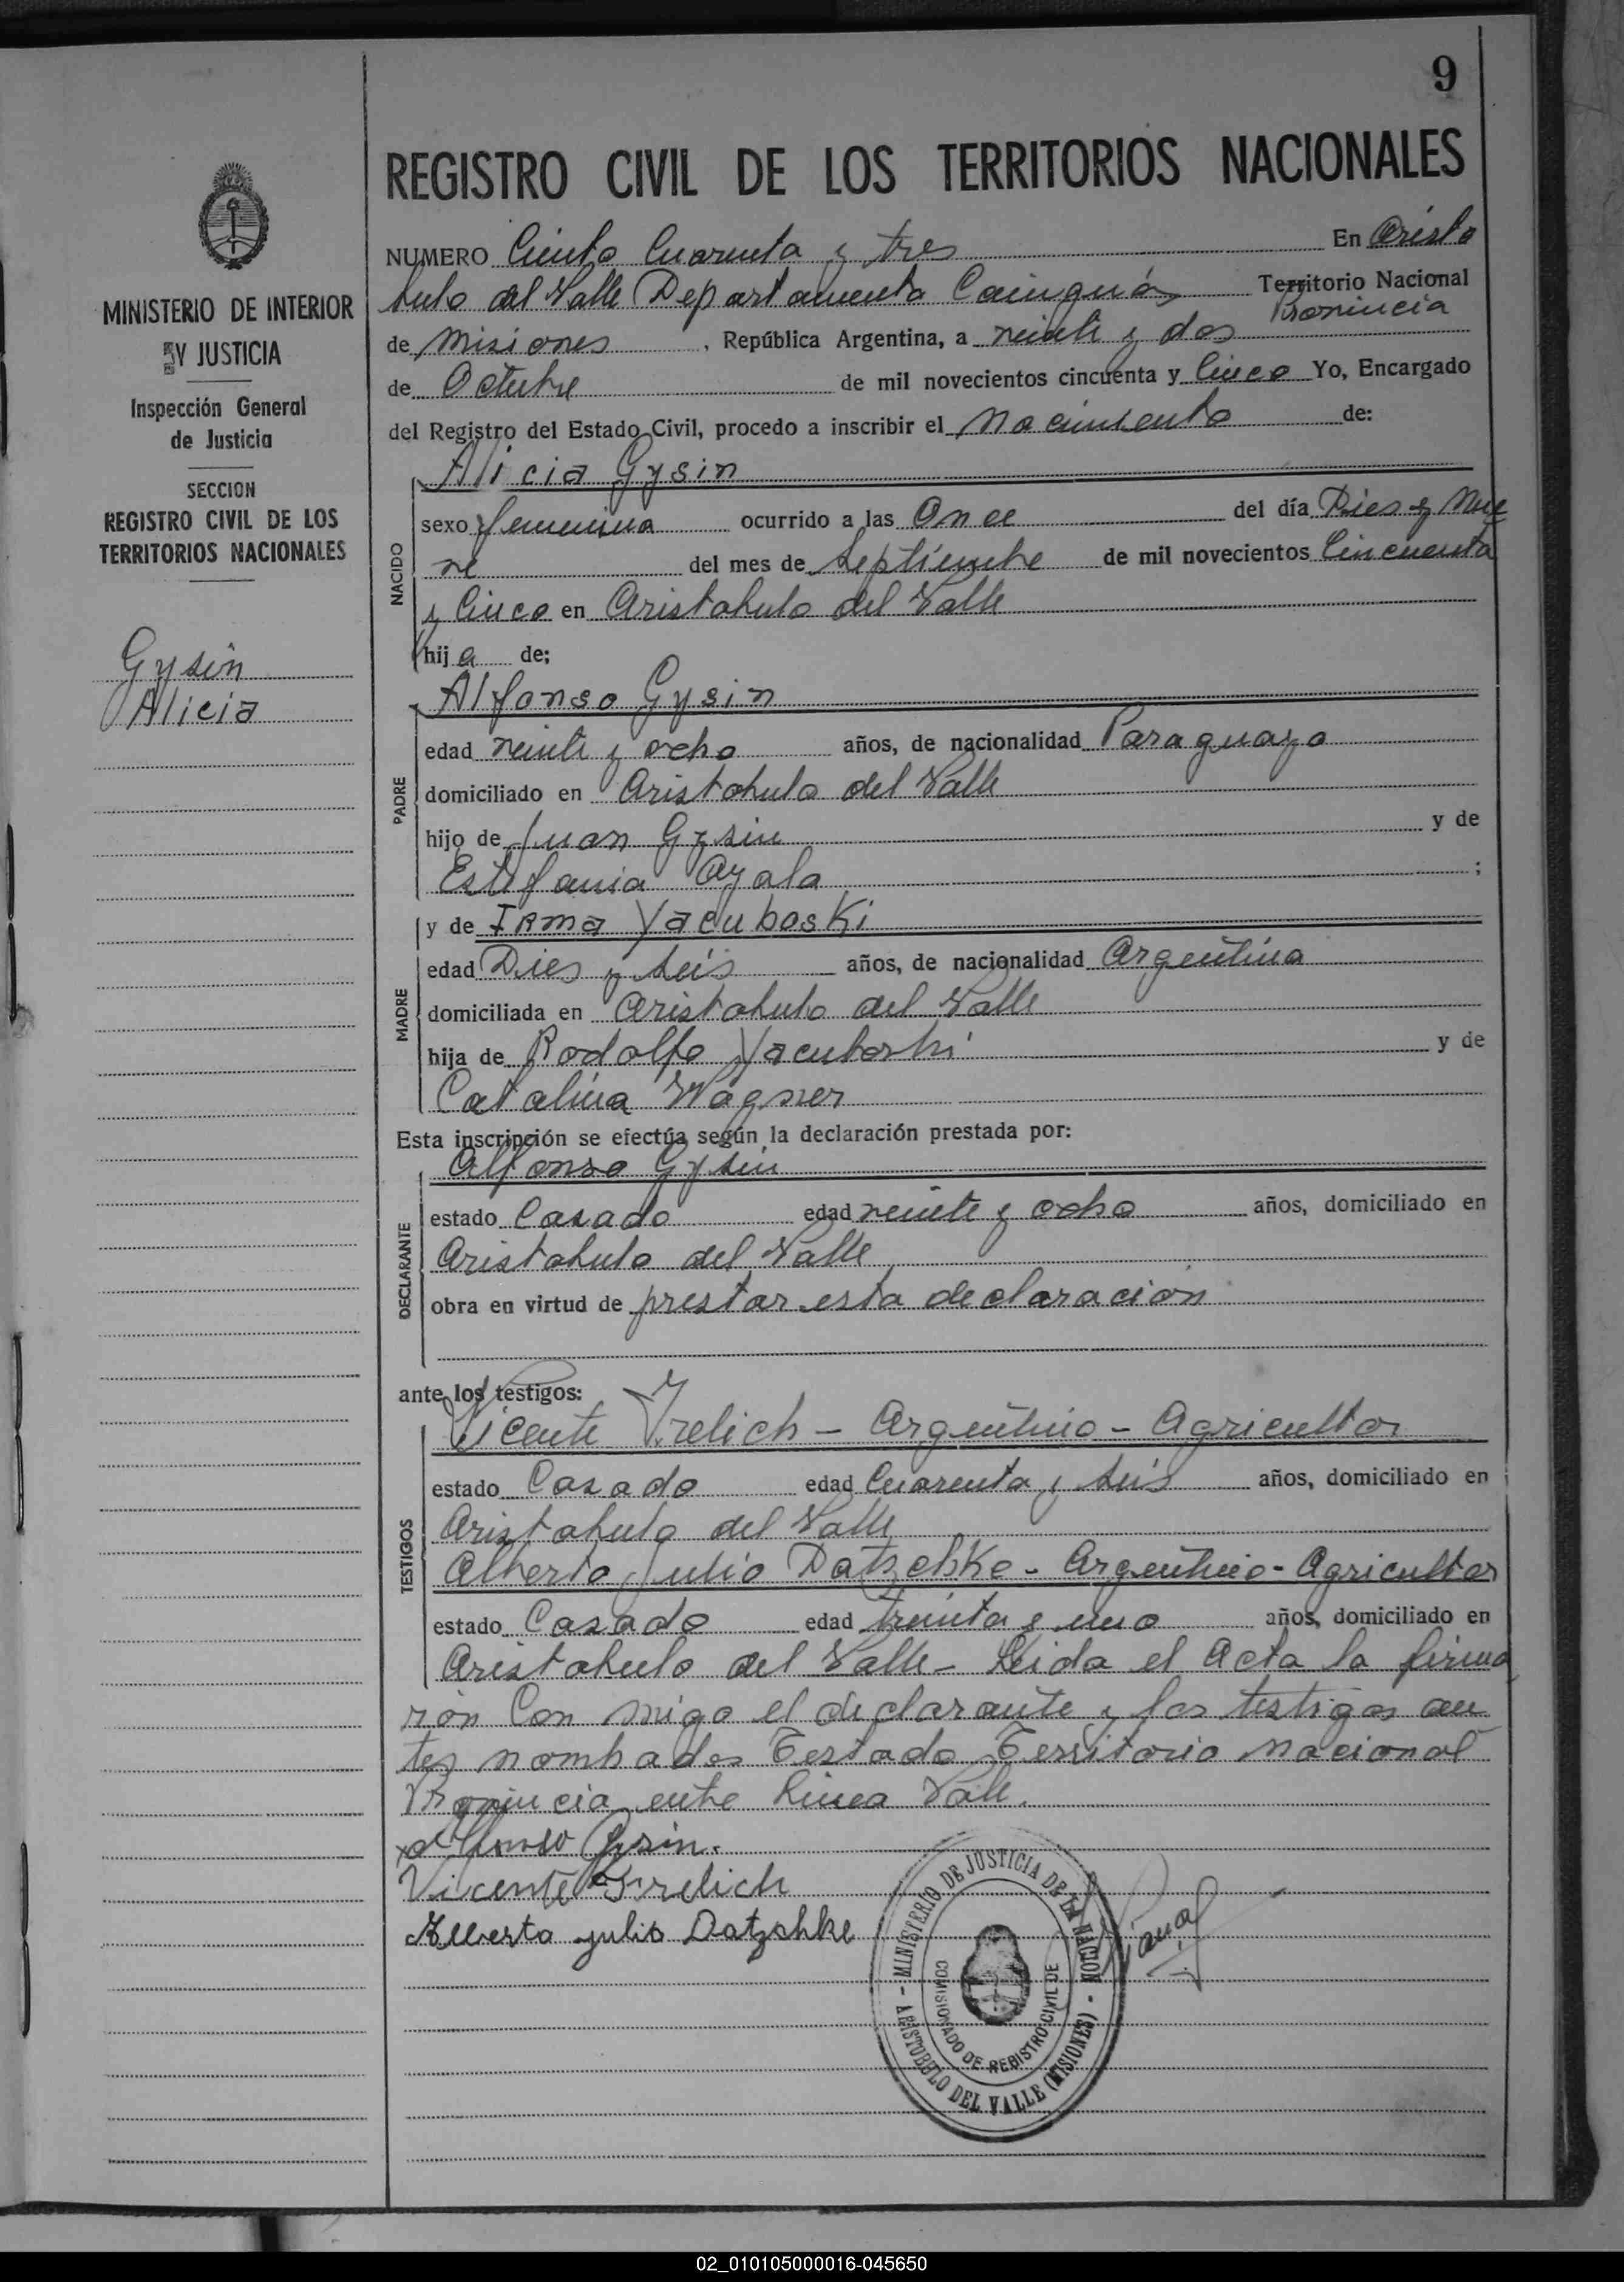 9
REGISTRO CIVIL DE LOS TERRITORIOS NACIONALES
MINISTERIO DE INTERIOR
Y JUSTICIA
Inspección General
de Justicia
SECCION
REGISTRO CIVIL DE LOS
TERRITORIOS NACIONALES
Gysin
Alicia
NUMERO Ciento Cuarenta y tres En Aristo
bulo del Valle Departamento Cainguás Territorio Nacional
Provincia
de Misiones, República Argentina, a veinti y dos
de Octubre de mil novecientos cincuenta y Cinco Yo, Encargado
del Registro del Estado Civil, procedo a inscribir el Nacimiento de:
Alicia Gysin
NACIDO
sexo femenina ocurrido a las Once del día Dies y Nue
ve del mes de Septiembre de mil novecientos Cincuenta
y Cinco en Aristobulo del Valle
hija de;
Alfonso Gysin
PADRE
edad veinti y ocho años, de nacionalidad Paraguayo
domiciliado en Aristobulo del Valle
hijo de Juan Gysin y de
Estefania Ayala ;
MADRE
y de Irma Yacuboski
edad Dies y seis años, de nacionalidad Argentina
domiciliada en Aristobulo del Valle
hija de Rodolfo Yacuboski y de
Catalina Wagner
Esta inscripción se efectúa según la declaración prestada por:
Alfonso Gysin
DECLARANTE
estado Casado edad veinte y ocho años, domiciliado en
Aristobulo del Valle
obra en virtud de prestar esta declaración
ante los testigos:
Vicente Frelich - Argentino - Agricultor
TESTIGOS
estado Casado edad Cuarenta y seis años, domiciliado en
Aristobulo del Valle
Alberto Julio Datzchke - Argentino - Agricultor
estado Casado edad treinta y uno años, domiciliado en
Aristobulo del Valle - Leida el Acta la firma
ron Con migo el declarante y los testigos an
tes nombados Testado Territorio nacional
Provincia entre linea Vale.
x Alfonso Gysin.
Vicente Frelich
Alberto Julio Datzchke
- MINISTERIO DE JUSTICIA DE LA NACION -
ARISTOBULO DEL VALLE (MISIONES)
COMISIONADO DE REGISTRO CIVIL DE
02_010105000016-045650